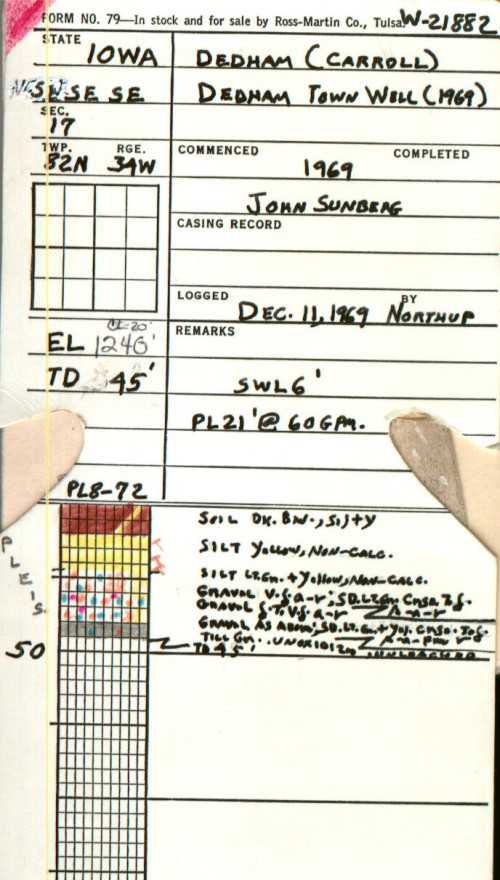 FORM NO. 79—In stock and for sale by Ross-Martin Co., Tulsa. W-21882
STATE
IOWA
DEDHAM (CARROLL)
SE SE
DEDHAM TOWN WELL (1969)
SEC.
17
TWP. RGE.
82N 34W
COMMENCED COMPLETED
1969
JOHN SUNBERG
CASING RECORD
LOGGED BY
DEC. 11, 1969 NORTHUP
REMARKS
EL 1246'
TD 45'
SWL 6'
PL21'@ 60GPM.
PL8-72
SOIL DK. BN., SILTY
SILT YELLOW, NON-CALC.
SILT LT.GN. + YELLOW, NON-CALC.
GRAVEL V.f. a-r; SD. LT.GN. CNSE. TO f.
a-r
GRAVEL f. TO V.f. a-r
GRAVEL AS ABOVE; SD. LT.GN. + YEL. CNSE. TO f.
TILL GN., UNOXIDIZED, UNLEACHED
TD 45'
PLEIS.
50